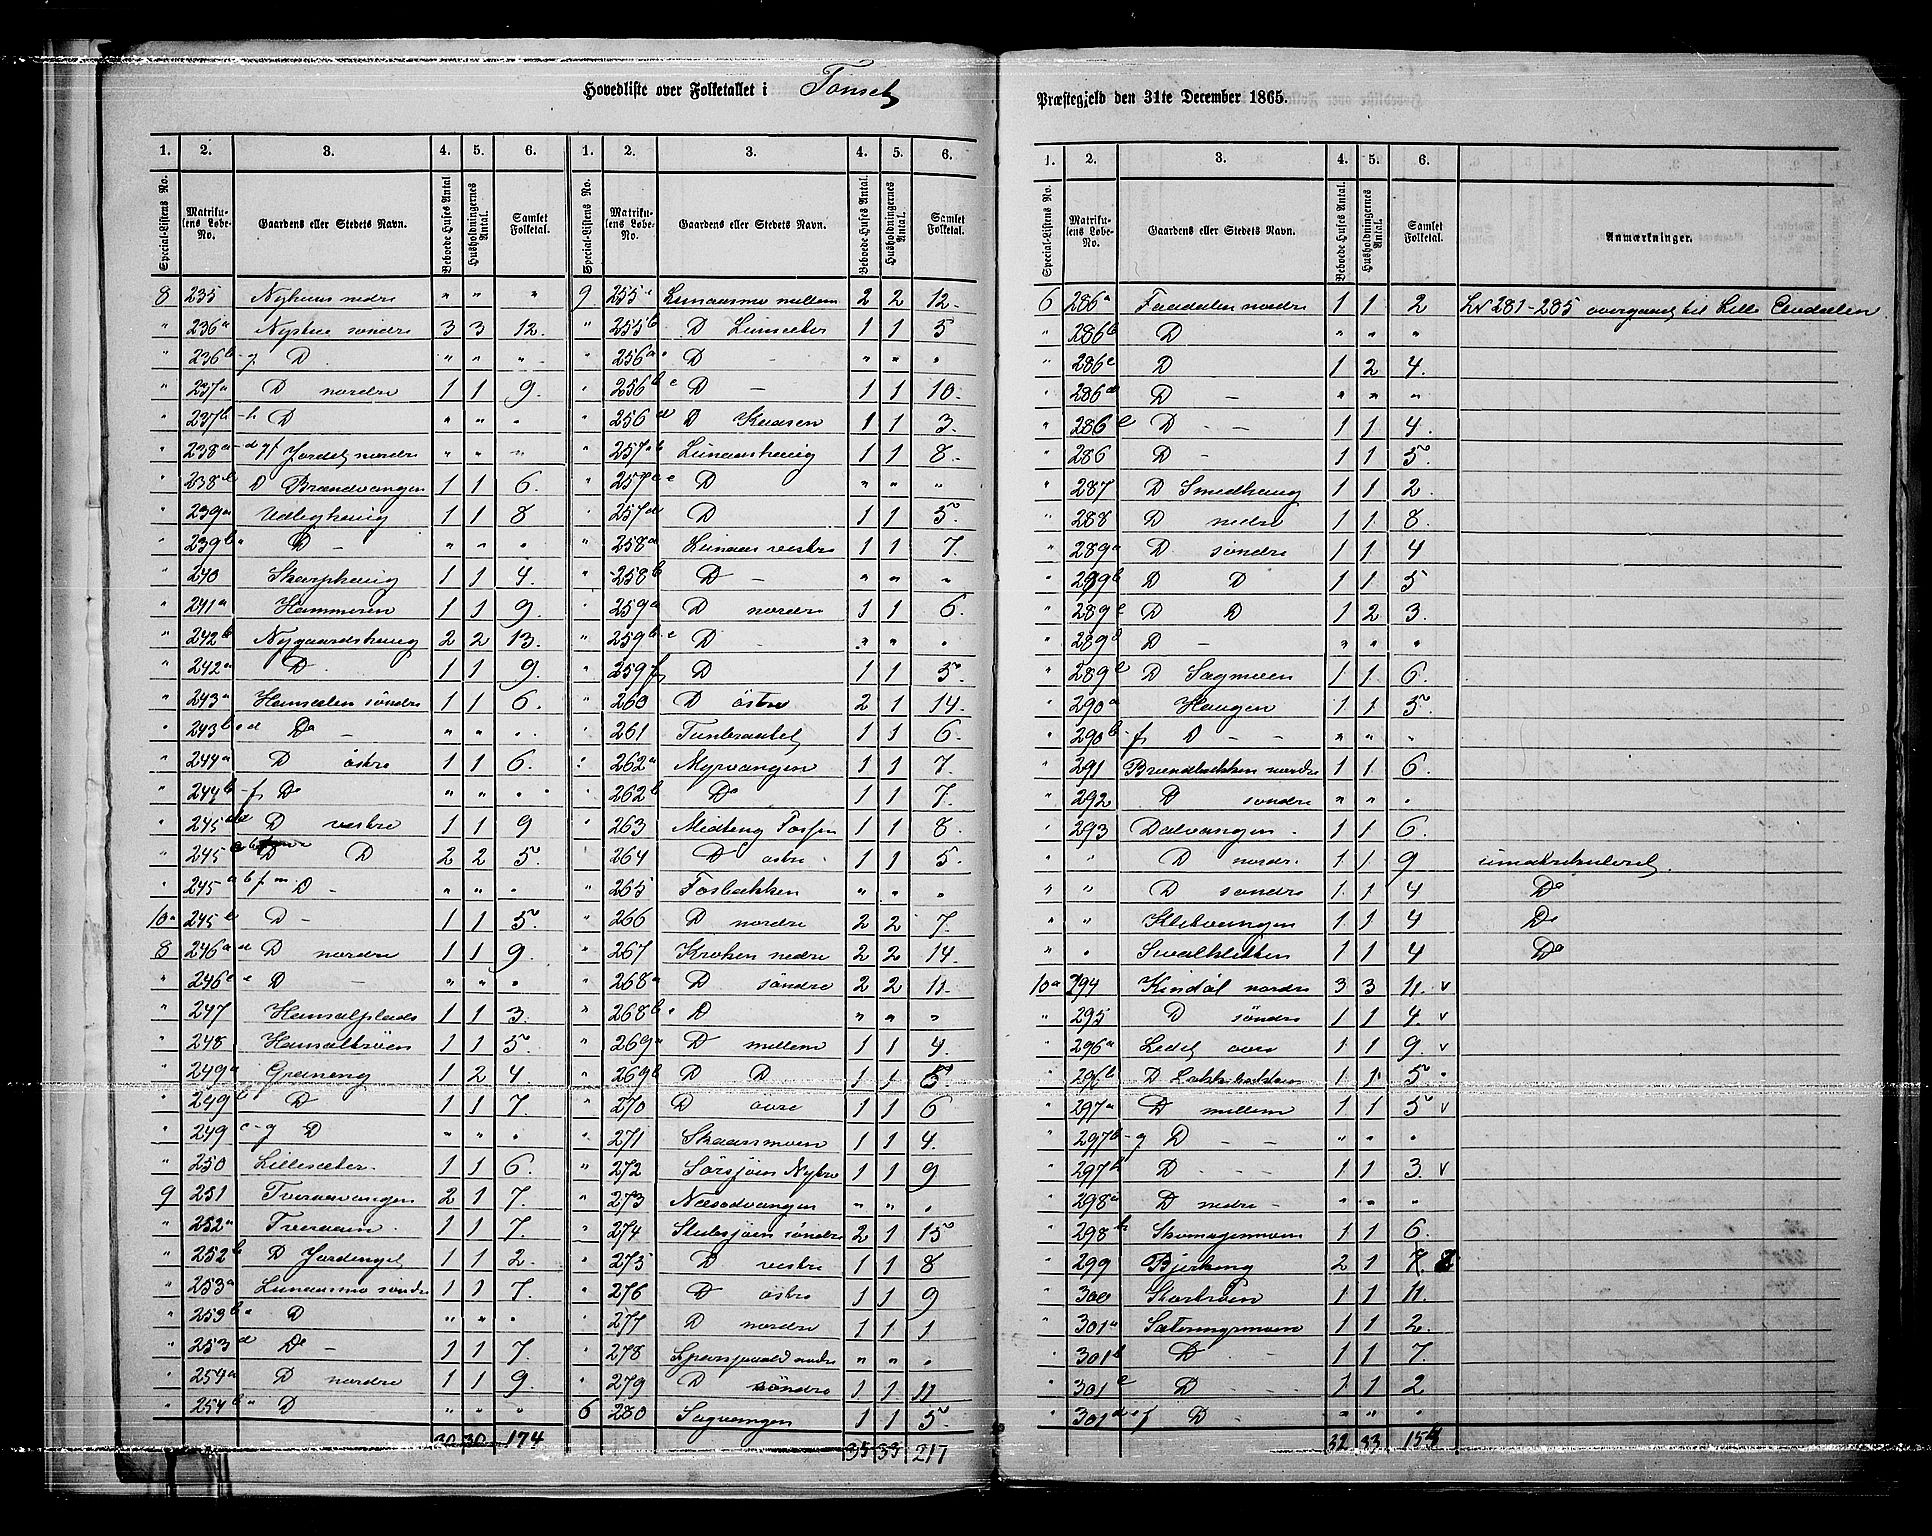 Hovedliste over Folketallet i Tönset
Præstegjeld den 31te December 1865.
1. 2. 3. 4. 5. 6. 1. 2. 3. 4. 5. 6.
Special-Listens No. Matrikulens Løbe-No. Gaardens eller Stedets Navn. Beboede Huses Antal Husholdningernes Antal. Samlet Folketal. Special-Listens No. Matrikulens Løbe-No. Gaardens eller Stedets Navn. Beboede Huses Antal. Husholdningernes Antal. Samlet Folketal.
8 235 Nyhuus nedre " " "
" 236a Nystue söndre 3 3 12.
" 236b-g D " " "
" 237a D nordre 1 1 9.
" 237b-h D " " "
" 238a-d gf Jordet nordre " " "
" 238e D Brændvangen 1 1 6.
" 239a Udlighaug 1 1 8
" 239b D — " " "
" 240 Skarphaug 1 1 4.
" 241a Hammeren 1 1 9.
" 242b Nygaardshaug 2 2 13.
" 242a D 1 1 9.
" 243a Hamsalen söndre 1 1 6.
" 243b c d Do — " " "
" 244a D östre 1 1 6.
" 244b-f Do " " "
" 245 D vestre 1 1 9
" 245 D D 2 2 5.
" 245a b f m D — " " "
10a 245 D — 1 1 5.
8 246a d D nordre 1 1 9.
" 246c e D — " " "
" 247 Hamsalplads 1 1 3.
" 248 Hamsaltröen 1 1 5.
" 249a Græneng 1 2 4
" 249b D 1 1 7.
" 249 c-g D " " "
" 250 Lillesæter 1 1 6.
9 251 Tveraavangen 2 1 7.
" 252a Tveraaen 1 1 7.
" 252b D Jordenget 1 1 2.
" 253a Lunaasmo söndre 1 1 7.
" 253b D " " "
" 253d Do — 1 1 7.
" 254a D nordre 1 1 9.
" 254b D " " "
30 30 174
9 255a Lunaasmo mellem 2 2 12.
" 255b D Lunsæter 1 1 5
" 256a D — " " "
" 256b c D — 1 1 10.
" 256d D Knasen 1 1 3.
" 257b Lunaashaug 1 1 8.
" 257a c D " " "
" 257d D 1 1 5.
" 258a Lunaas vestre 1 1 7.
" 258b D — " " "
" 259a D nordre 1 1 6.
" 259b-e D " " "
" 259f D 1 1 5.
" 260 D östre 2 1 14.
" 261 Tunbraatet 1 1 6.
" 262a Myrvangen 1 1 7.
" 262b Do 1 1 7.
" 263 Midteng Fossen 1 1 8.
" 264 D östre 1 1 5.
" 265 Fosbakken " " "
" 266 D nordre 2 2 7.
" 267 Kroken nedre 2 2 14.
" 268a D söndre 2 2 11.
" 268b D " " "
" 269a D mellem 1 1 4.
" 269b D D 1 1 5
" 270 D övre 1 1 6
" 271 Skaarsmoen 1 1 4.
" 272 Sörsjöen Nybro 1 1 9
" 273 Næsodvangen " " "
" 274 Stubsjöen söndre 2 1 15
" 275 D vestre 1 1 8
" 276 D östre 1 1 9
" 277 D nordre 1 1 1
" 278 Sparsjuvold nordre " " "
" 279 D söndre 1 1 11
6 280 Sagvangen 1 1 5.
35 33 217
1. 2. 3. 4. 5. 6.
Special-Listens No. Matrikulens Løbe-No. Gaardens eller Stedets Navn. Beboede Huses Antal. Husholdningernes Antal. Samlet Folketal. Anmærkninger.
6 286a Faadalen nordre 1 1 2 Lv 281-285 overgaaet til Lille Elvdalen
" 286b D " " "
" 286c D 1 2 4.
" 286d D — " " "
" 286e D — 1 1 4.
" 286 D — 1 1 5.
" 287 D Smedhaug 1 1 2.
" 288 D nedre 1 1 8.
" 289a D söndre 1 1 4
" 289b D D 1 1 5
" 289c D D 1 2 3.
" 289d D — " " "
" 289e D Sagmoen 1 1 6.
" 290a Haugen 1 1 5.
" 290b-f D — " " "
" 291 Brændbakken nordre 1 1 6.
" 292 D söndre " " "
" 293 Dalvangen 1 1 6.
" " D nordre 1 1 9 umatrikuleret
" " D söndre 1 1 4 Do
" " Kletvangen 1 1 4 Do
" " Svalkletten 1 1 4 Do
10a 294 Kindöl nordre 3 3 11. v
" 295 D söndre 1 1 4. v
" 296a Ledet övre 1 1 9. v
" 296b D Lokkebakken 1 1 5
" 297a D mellem 1 1 5 v
" 297b-g D — " " "
" 297h D — 1 1 3. v
" 298a D nedre — " " "
" 298b Skomagermoen 1 1 6.
" 299 Bjerkeng 2 1
" 300 Stortröen 1 1 11.
" 301a Sæteringsmoen 1 1 2.
" 301b D 1 1 7.
" 301c D 1 1 2
" 301d e f D " " "
32 33